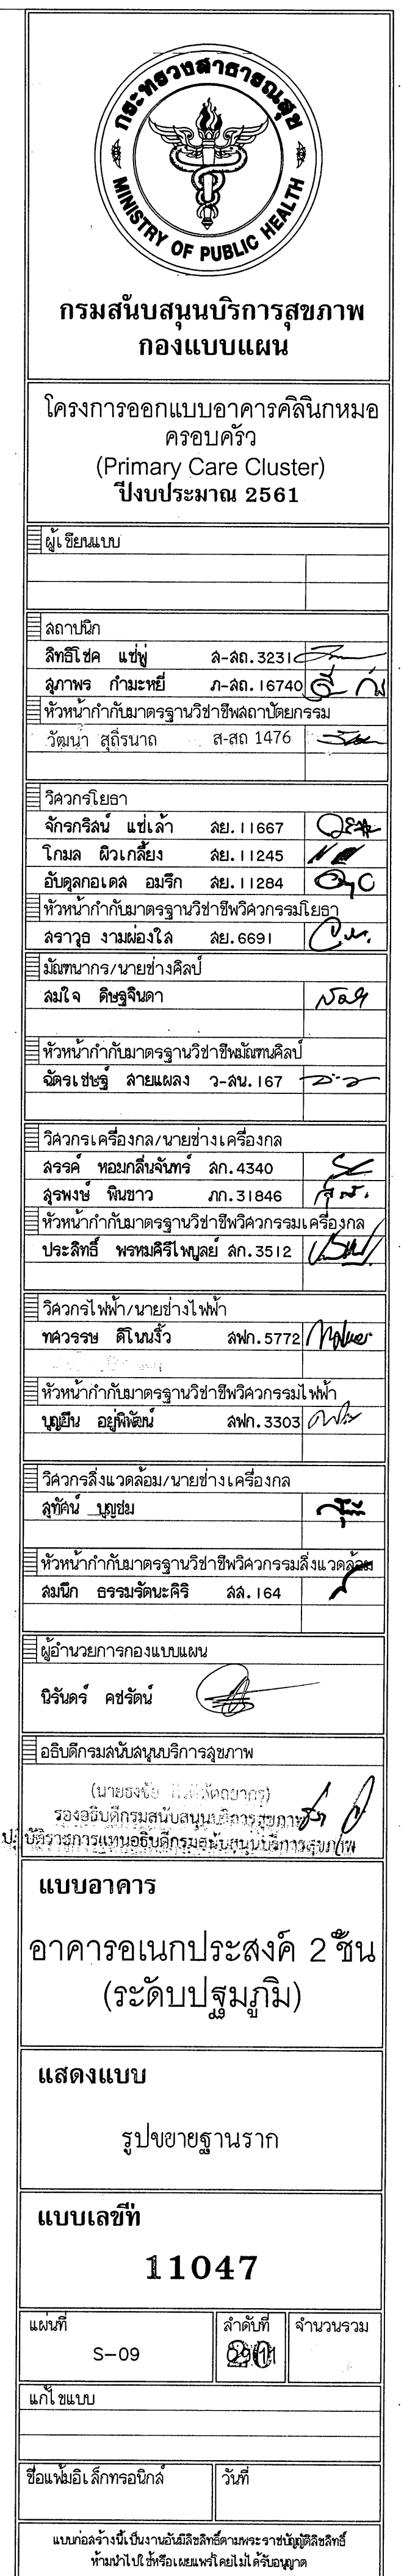 กระทรวงสาธารณสุข
MINISTRY OF PUBLIC HEALTH
กรมสนับสนุนบริการสุขภาพ
กองแบบแผน
โครงการออกแบบอาคารคลินิกหมอ
ครอบครัว
(Primary Care Cluster)
ปีงบประมาณ 2561
ผู้เขียนแบบ
สถาปนิก
สิทธิโชค แซ่พู่ ส-สถ.3231
สุภาพร กำมะหยี่ ภ-สถ.16740
หัวหน้ากำกับมาตรฐานวิชาชีพสถาปัตยกรรม
วัฒนา สุถิรนาถ ส-สถ 1476
วิศวกรโยธา
จักรกริสน์ แซ่เล้า สย.11667
โกมล ผิวเกลี้ยง สย.11245
อับดุลกอเดส อมรึก สย.11284
หัวหน้ากำกับมาตรฐานวิชาชีพวิศวกรรมโยธา
สราวุธ งามผ่องใส สย.6691
มัณฑนากร/นายช่างศิลป์
สมใจ ดิษฐจินดา
หัวหน้ากำกับมาตรฐานวิชาชีพมัณฑนศิลป์
ฉัตรเชษฐ์ สายแผลง ว-สน.167
วิศวกรเครื่องกล/นายช่างเครื่องกล
สรรค์ หอมกลิ่นจันทร์ สก.4340
สุรพงษ์ พินขาว ภก.31846
หัวหน้ากำกับมาตรฐานวิชาชีพวิศวกรรมเครื่องกล
ประสิทธิ์ พรหมคิรีไพบูลย์ สก.3512
วิศวกรไฟฟ้า/นายช่างไฟฟ้า
ทศวรรษ ดิโนนงิ้ว สฟก.5772
หัวหน้ากำกับมาตรฐานวิชาชีพวิศวกรรมไฟฟ้า
บุญยืน อยู่พิพัฒน์ สฟก.3303
วิศวกรสิ่งแวดล้อม/นายช่างเครื่องกล
สุทัศน์ บุญชม
หัวหน้ากำกับมาตรฐานวิชาชีพวิศวกรรมสิ่งแวดล้อม
สมนึก ธรรมรัตนะคิริ สส.164
ผู้อำนวยการกองแบบแผน
นิรันดร์ คชรัตน์
อธิบดีกรมสนับสนุนบริการสุขภาพ
(นายธงชัย
รองอธิบดีกรมสนับสนุนบริการสุขภาพ
ปฏิบัติราชการแทนอธิบดีกรมสนับสนุนบริการสุขภาพ
แบบอาคาร
อาคารอเนกประสงค์ 2 ชั้น
(ระดับปฐมภูมิ)
แสดงแบบ
รูปขยายฐานราก
แบบเลขที่
11047
แผ่นที่ ลำดับที่ จำนวนรวม
S-09 20
แก้ไขแบบ
ชื่อแฟ้มอิเล็กทรอนิกส์ วันที่
แบบก่อสร้างนี้เป็นงานอันมีลิขสิทธิ์ตามพระราชบัญญัติลิขสิทธิ์
ห้ามนำไปใช้หรือเผยแพร่โดยไม่ได้รับอนุญาต